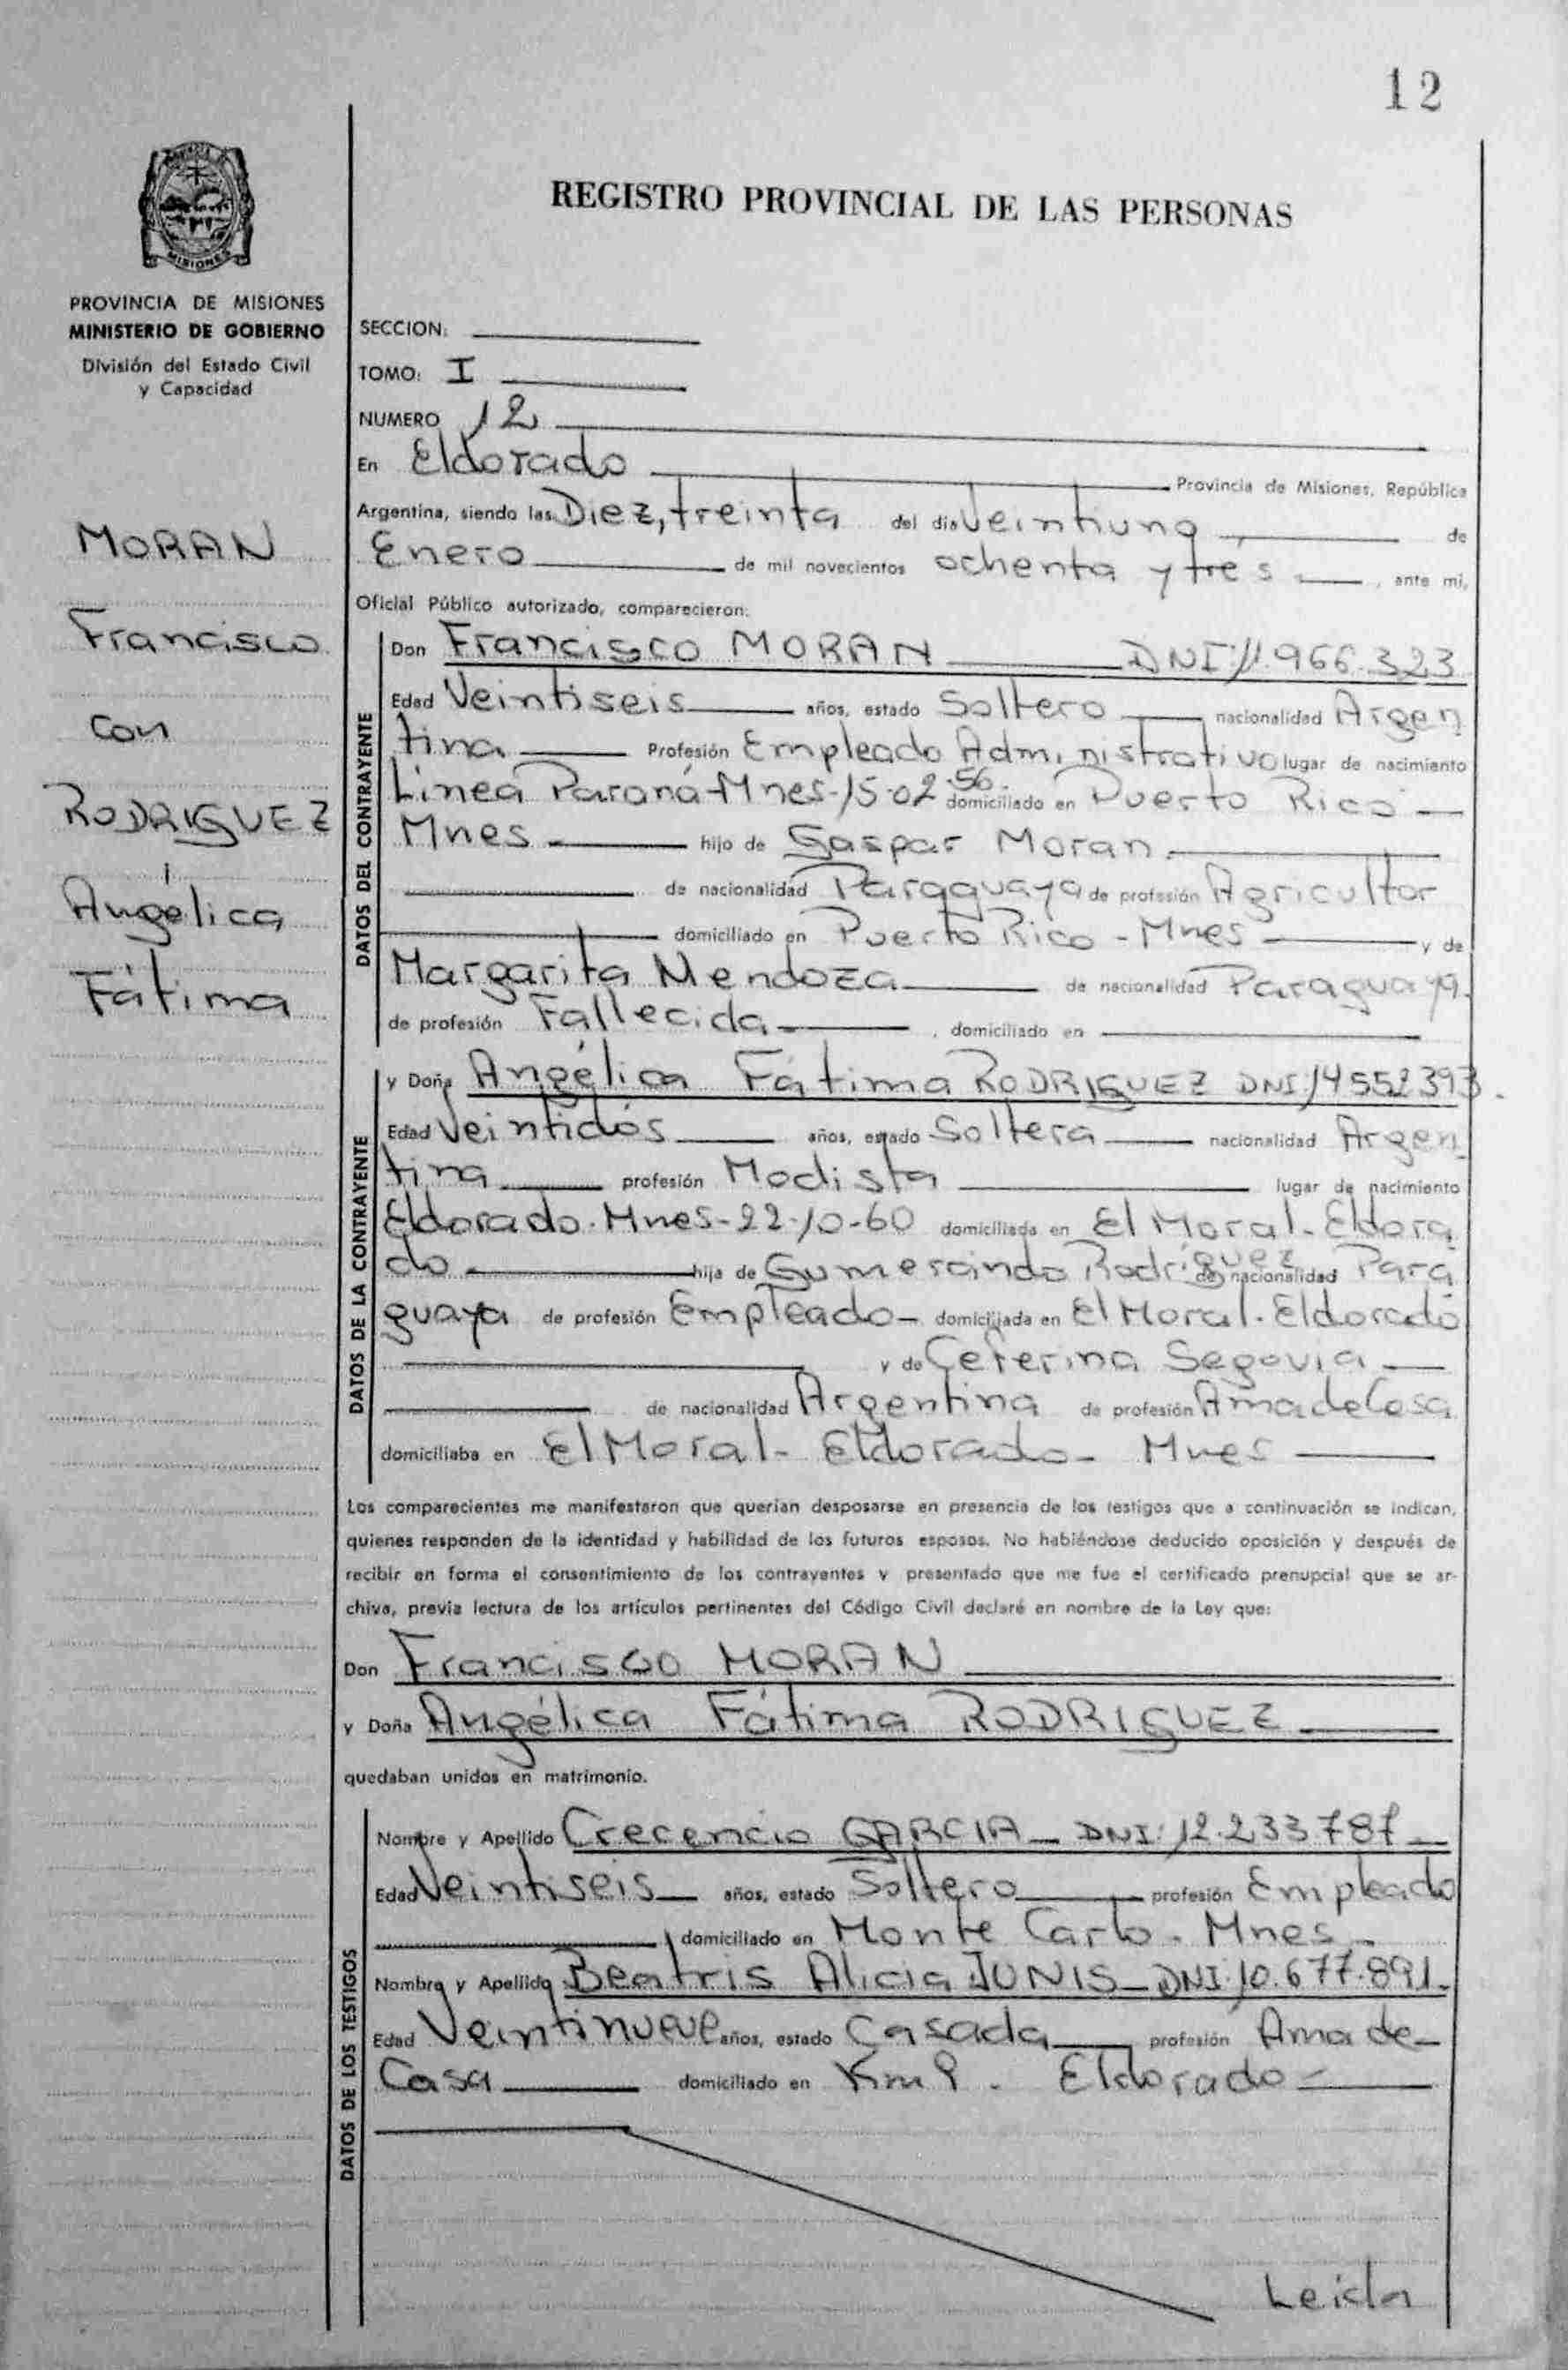 12
PROVINCIA DE
MISIONES
REGISTRO PROVINCIAL DE LAS PERSONAS
PROVINCIA DE MISIONES
MINISTERIO DE GOBIERNO
División del Estado Civil
y Capacidad
MORAN
Francisco
con
RODRIGUEZ
Angélica
Fátima
SECCION:
TOMO: I
NUMERO 12
En Eldorado Provincia de Misiones, República
Argentina, siendo las Diez, treinta del dia Veintiuno de
Enero de mil novecientos ochenta y tres, ante mi,
Oficial Público autorizado, comparecieron:
DATOS DEL CONTRAYENTE
Don Francisco MORAN DNI: 11.966.323
Edad Veintiseis años, estado Soltero nacionalidad Argen
tina Profesión Empleado Administrativo lugar de nacimiento
Linea Paraná-Mnes-15-02-56- domiciliado en Puerto Rico
Mnes hijo de Gaspar Moran
de nacionalidad Paraguaya de profesión Agricultor
domiciliado en Puerto Rico - Mnes y de
Margarita Mendoza de nacionalidad Paraguaya.
de profesión Fallecida, domiciliado en
DATOS DE LA CONTRAYENTE
y Doña Angélica Fátima RODRIGUEZ DNI: 14552393.
Edad Veintidós años, estado Soltera nacionalidad Argen
tina profesión Modista lugar de nacimiento
Eldorado-Mnes-22-10-60 domiciliada en El Moral-Eldora
do hija de Gumersindo Rodríguez de nacionalidad Para
guaya de profesión Empleado domiciliada en El Moral-Eldorado
y de Ceferina Segovia
de nacionalidad Argentina de profesión Ama de Casa
domiciliaba en El Moral - Eldorado - Mnes
Los comparecientes me manifestaron que querían desposarse en presencia de los testigos que a continuación se indican,
quienes responden de la identidad y habilidad de los futuros esposos. No habiéndose deducido oposición y después de
recibir en forma el consentimiento de los contrayentes y presentado que me fue el certificado prenupcial que se ar-
chiva, previa lectura de los artículos pertinentes del Código Civil declaré en nombre de la Ley que:
Don Francisco MORAN
y Doña Angélica Fátima RODRIGUEZ
quedaban unidos en matrimonio.
DATOS DE LOS TESTIGOS
Nombre y Apellido Crecencio GARCIA - DNI: 12.233.787
Edad Veintiseis años, estado Soltero profesión Empleado
domiciliado en Monte Carlo - Mnes
Nombre y Apellido Beatris Alicia JUNIS - DNI: 10.677.891.
Edad Veintinueve años, estado Casada profesión Ama de
Casa domiciliado en Km 9 - Eldorado
Leida